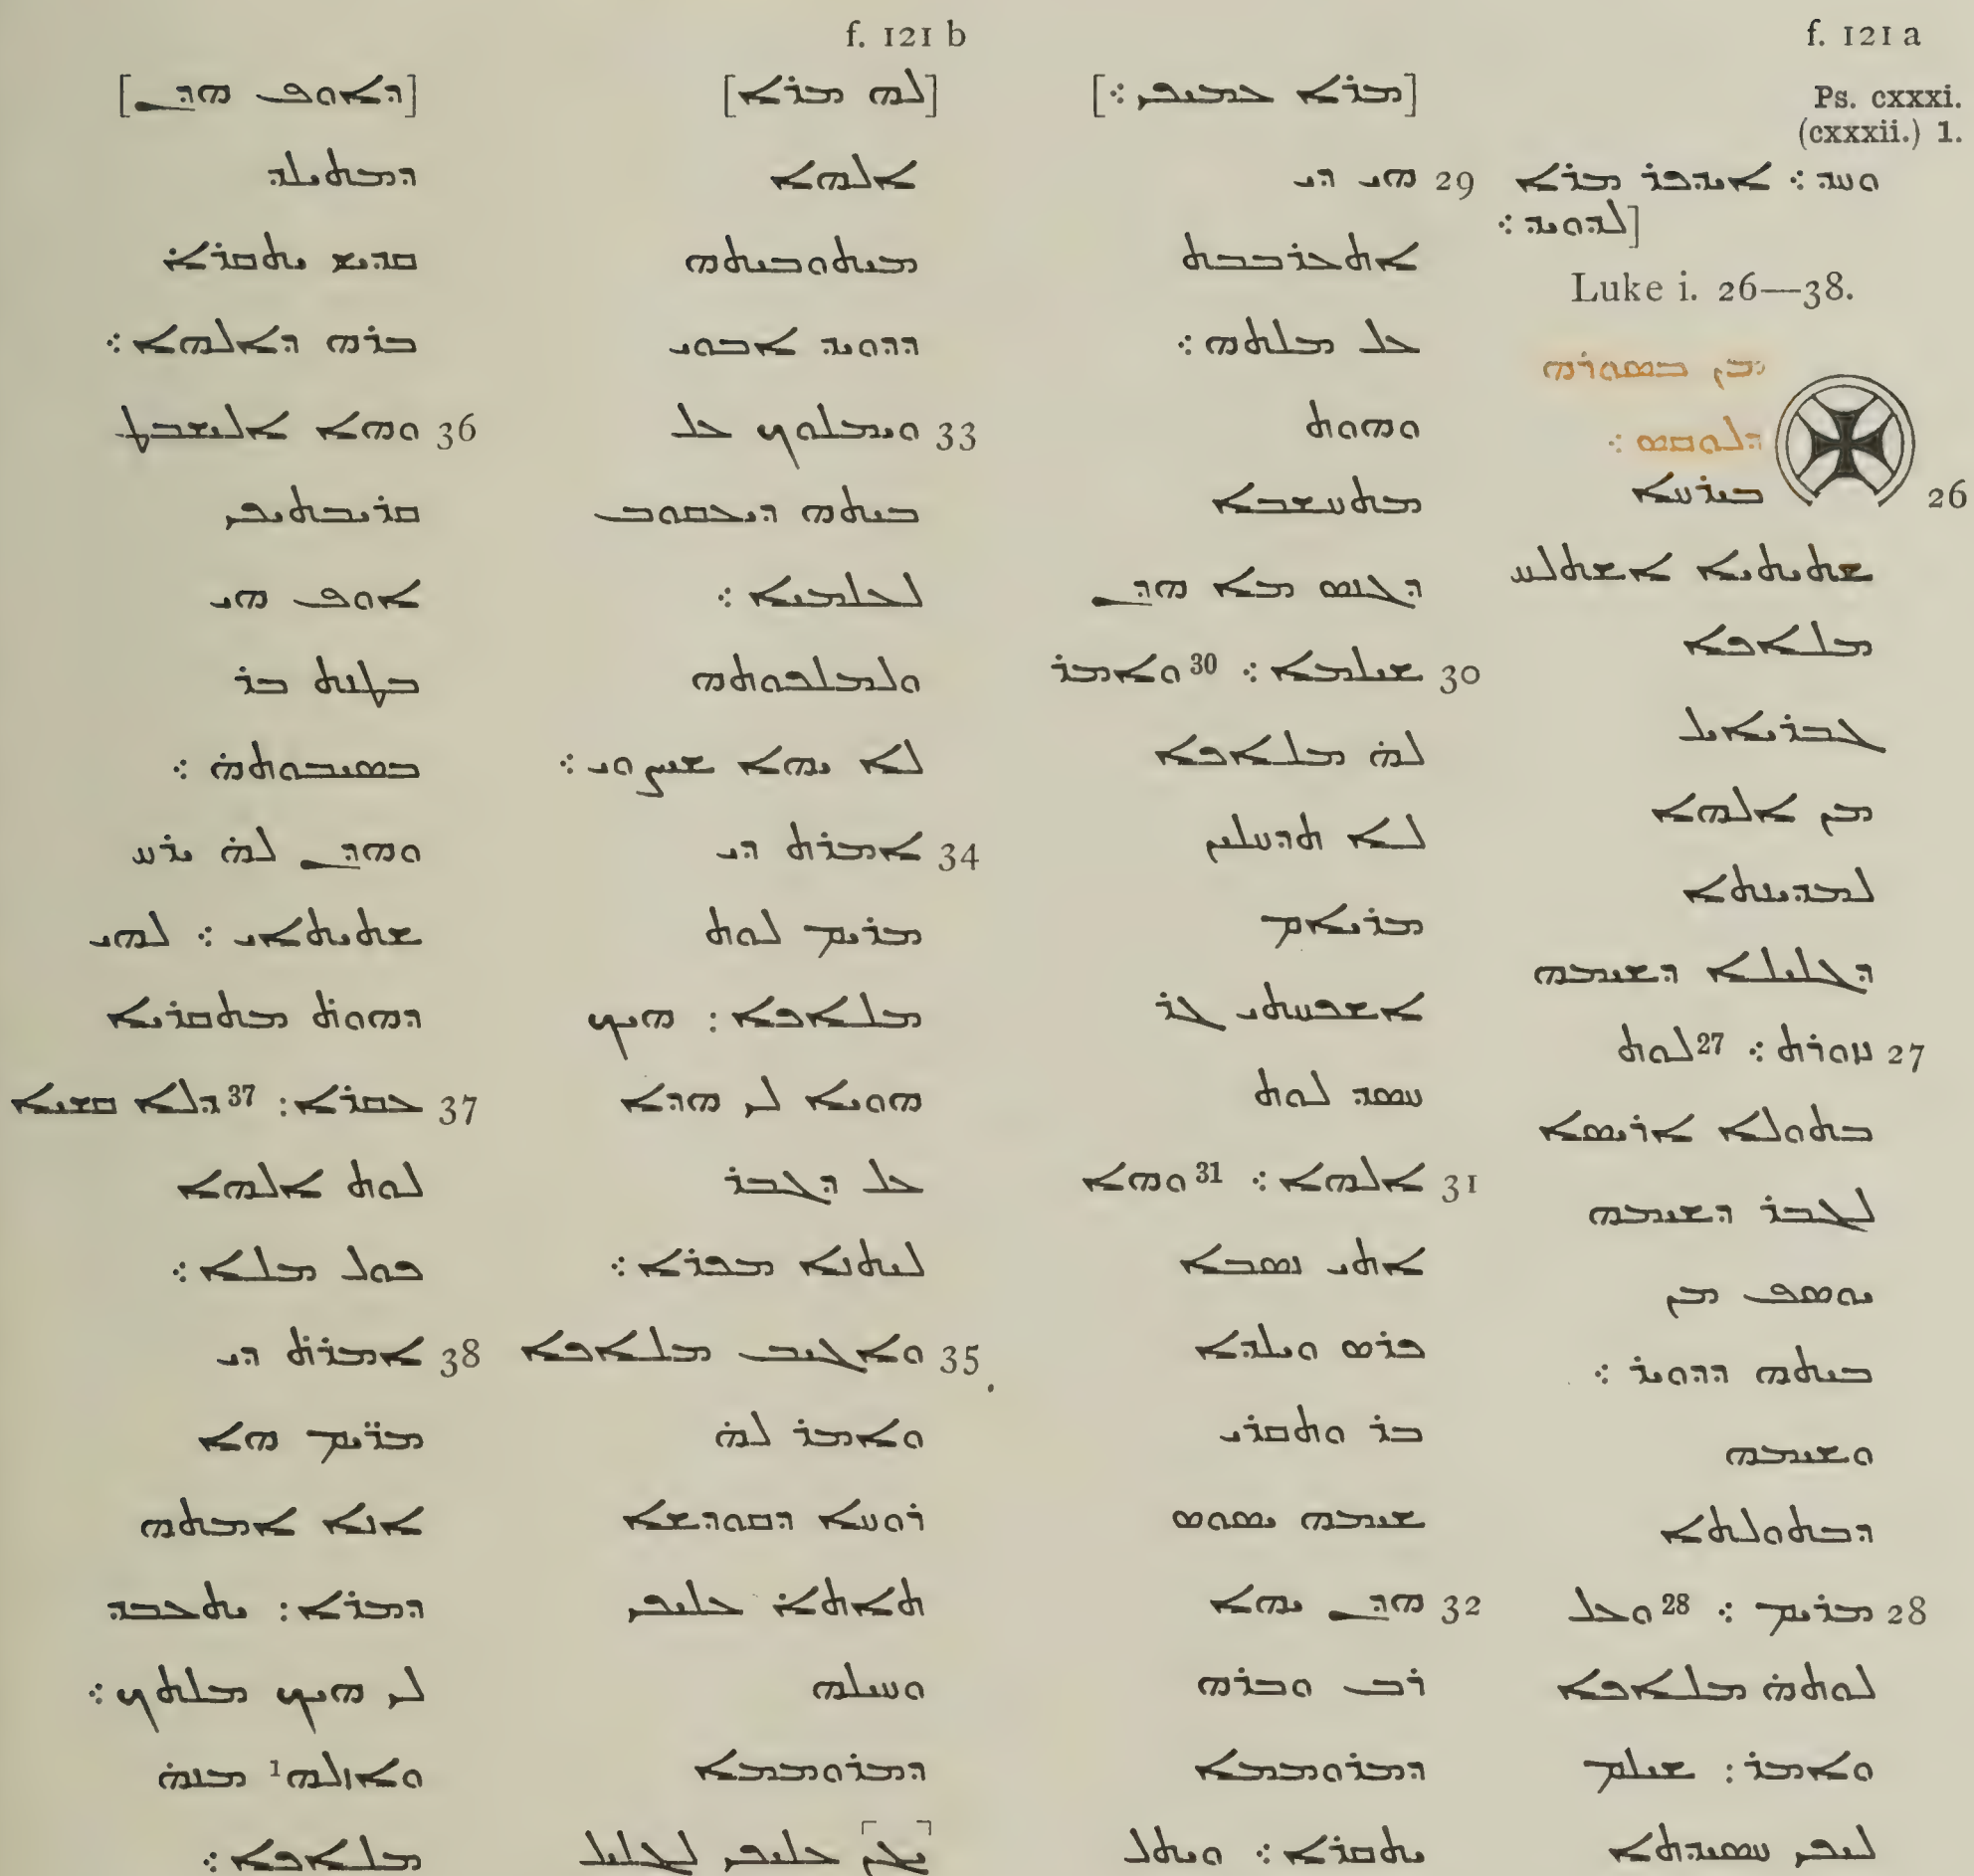 f. 121 a
Ps. cxxxi.
(cxxxii.) 1.
ܘܚܕ ܀ ܐܝܕܟܪ ܡܪܐ
[ܠܕܘܝܕ ܀
Luke i. 26—38.
ܡܢ ܒܣܘܪܗ
ܕܠܘܩܣ ܀
26 ܒܝܪܚܐ
ܫܬܝܬܝܐ ܐܫܬܠܚ
ܡܠܐܟܐ
ܓܒܪܝܐܝܠ
ܡܢ ܐܠܗܐ
ܠܡܕܝܢܬܐ
ܕܓܠܝܠܐ ܕܫܝܡܗ
27 ܢܙܘܪܬ ܀ 27 ܠܘܬ
ܒܬܘܠܐ ܐܪܝܣܐ
ܠܓܒܪ ܕܫܝܡܗ
ܝܘܣܦ ܡܢ
ܒܝܬܗ ܕܕܘܝܕ ܀
ܘܫܝܡܗ
ܕܒܬܘܠܬܐ
28 ܡܪܝܡ ܀ 28 ܘܥܠ
ܠܘܬܗ̇ ܡܠܐܟܐ
ܘܐܡܪ : ܫܝܠܡ
ܠܝܟܢ ܚܣܝܕܬܐ
[ܡܪܐ ܥܡܝܟܢ ܀]
29 ܗܝ ܕܝ
ܐܬܥܪܒܒܬ
ܥܠ ܡܠܬܗ ܀
ܘܗܘܬ
ܡܬܚܫܒܐ
ܕܓܢܣ ܡܐ ܗܕܢ
30 ܫܝܠܡܐ ܀ 30 ܘܐܡܪ
ܠܗ̇ ܡܠܐܟܐ
ܠܐ ܬܕܚܠܝܢ
ܡܪܝܐܡ
ܐܫܟܚܬܝ ܓܪ
ܚܣܕ ܠܘܬ
31 ܐܠܗܐ ܀ 31 ܘܗܐ
ܐܬܝ ܢܣܒܐ
ܟܪܣ ܘܝܠܕܐ
ܒܪ ܘܬܩܪܝ
ܫܝܡܗ ܝܣܘܣ
32 ܗܕܢ ܝܗܐ
ܪܒ ܘܒܪܗ
ܕܡܪܘܡܡܐ
ܝܬܩܪܐ ܀ ܘܝܬܠ
f. 121 b
[ܠܗ ܡܪܐ]
ܐܠܗܐ
ܡܝܬܘܒܝܬܗ
ܕܕܘܝܕ ܐܒܘܝ
33 ܘܝܡܠܘܟ ܥܠ
ܒܝܬܗ ܕܝܥܩܘܒ
ܠܥܠܡܝܐ ܀
ܘܠܡܠܟܘܬܗ
ܠܐ ܝܗܐ ܫܝܨܘܝ ܀
34 ܐܡܪܬ ܕܝ
ܡܪܝܡ ܠܘܬ
ܡܠܐܟܐ : ܗܝܟ
ܗܘܝܐ ܠܝ ܗܕܐ
ܥܠ ܕܓܒܪ
ܠܝܬܢܐ ܡܟܪܐ ܀
35 ܘܐܓܝܒ ܡܠܐܟܐ
ܘܐܡܪ ܠܗ̇
ܪܘܚܐ ܕܩܘܕܫܐ
ܬܐܬܐ ܥܠܝܟܢ
ܘܚܝܠܗ
ܕܡܪܘܡܡܐ
ܝܓܢ ܥܠܝܟܢ ܠܓܠܝܠ
[ܕܐܘܦ ܗܕܢ]
ܕܡܬܝܠܕ
ܩܕܝܫ ܝܬܩܪܐ
ܒܪܗ ܕܐܠܗܐ ܀
36 ܘܗܐ ܐܠܝܫܒܛ
ܩܪܝܒܬܝܟܢ
ܐܘܦ ܗܝ
ܒܛܝܬ ܒܪ
ܒܣܝܒܘܬܗ̇ ܀
ܘܗܕܢ ܠܗ̇ ܝܪܚ
ܫܬܝܬܐܝ ܀ ܠܗܝ
ܕܗܘܬ ܡܬܩܪܝܐ
37 ܥܩܪܐ : 37 ܕܠܐ ܩܫܝܐ
ܠܘܬ ܐܠܗܐ
ܟܘܠ ܡܠܐ ܀
38 ܐܡܪܬ ܕܝ
ܡܪܝܡ ܗܐ
ܐܢܐ ܐܡܬܗ
ܕܡܪܐ : ܝܬܥܒܕ
ܠܝ ܗܝܟ ܡܠܬܟ ܀
ܘܐܙܠܗ1 ܡܢܗ̇
ܡܠܐܟܐ ܀